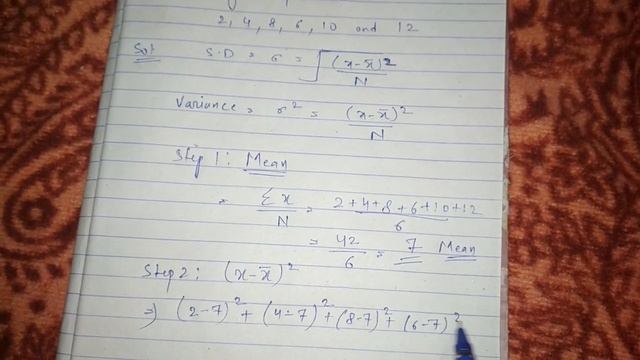 2, 4, 8, 6, 10 and 12
Sol S.D = σ = √(x-x̄)²/N
Variance = σ² = (x-x̄)²/N
Step 1: Mean
= Σx/N = 2+4+8+6+10+12/6
= 42/6 = 7 Mean
Step 2: (x-x̄)²
⇒ (2-7)² + (4-7)² + (8-7)² + (6-7)²